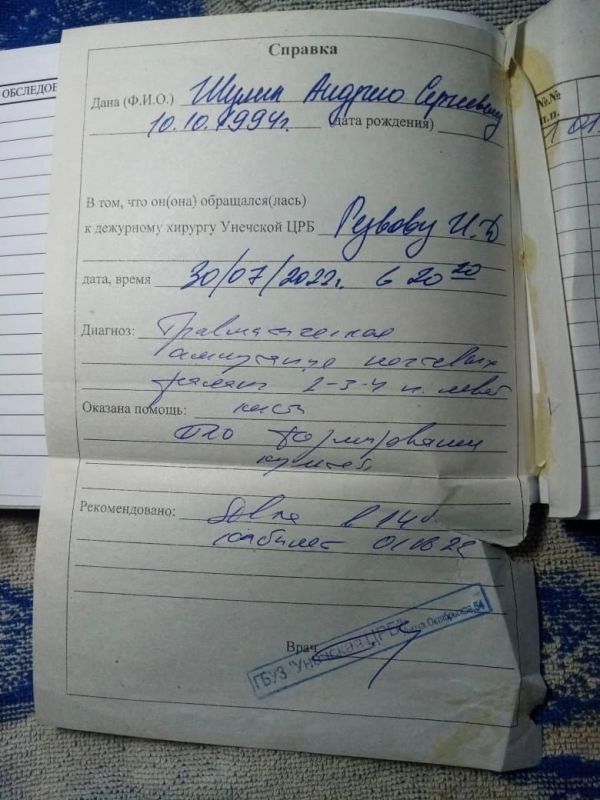 Справка
Дана (Ф.И.О.) Шулик Андрею Сергеевичу
10.10.1994г. (дата рождения)
В том, что он(она) обращался(лась)
к дежурному хирургу Унечской ЦРБ
дата, время 30/07/2022г. в 20 20
Диагноз: Травматическая
ампутация ногтевых
фаланг 2-3-4 п. левой
Оказана помощь: кисти
ПХО формирование
культей
Рекомендовано: Явка в
кабинет 01.08.22
Врач
ГБУЗ "Унечская ЦРБ"
ОБСЛЕДОВ
№№
п.п.
1